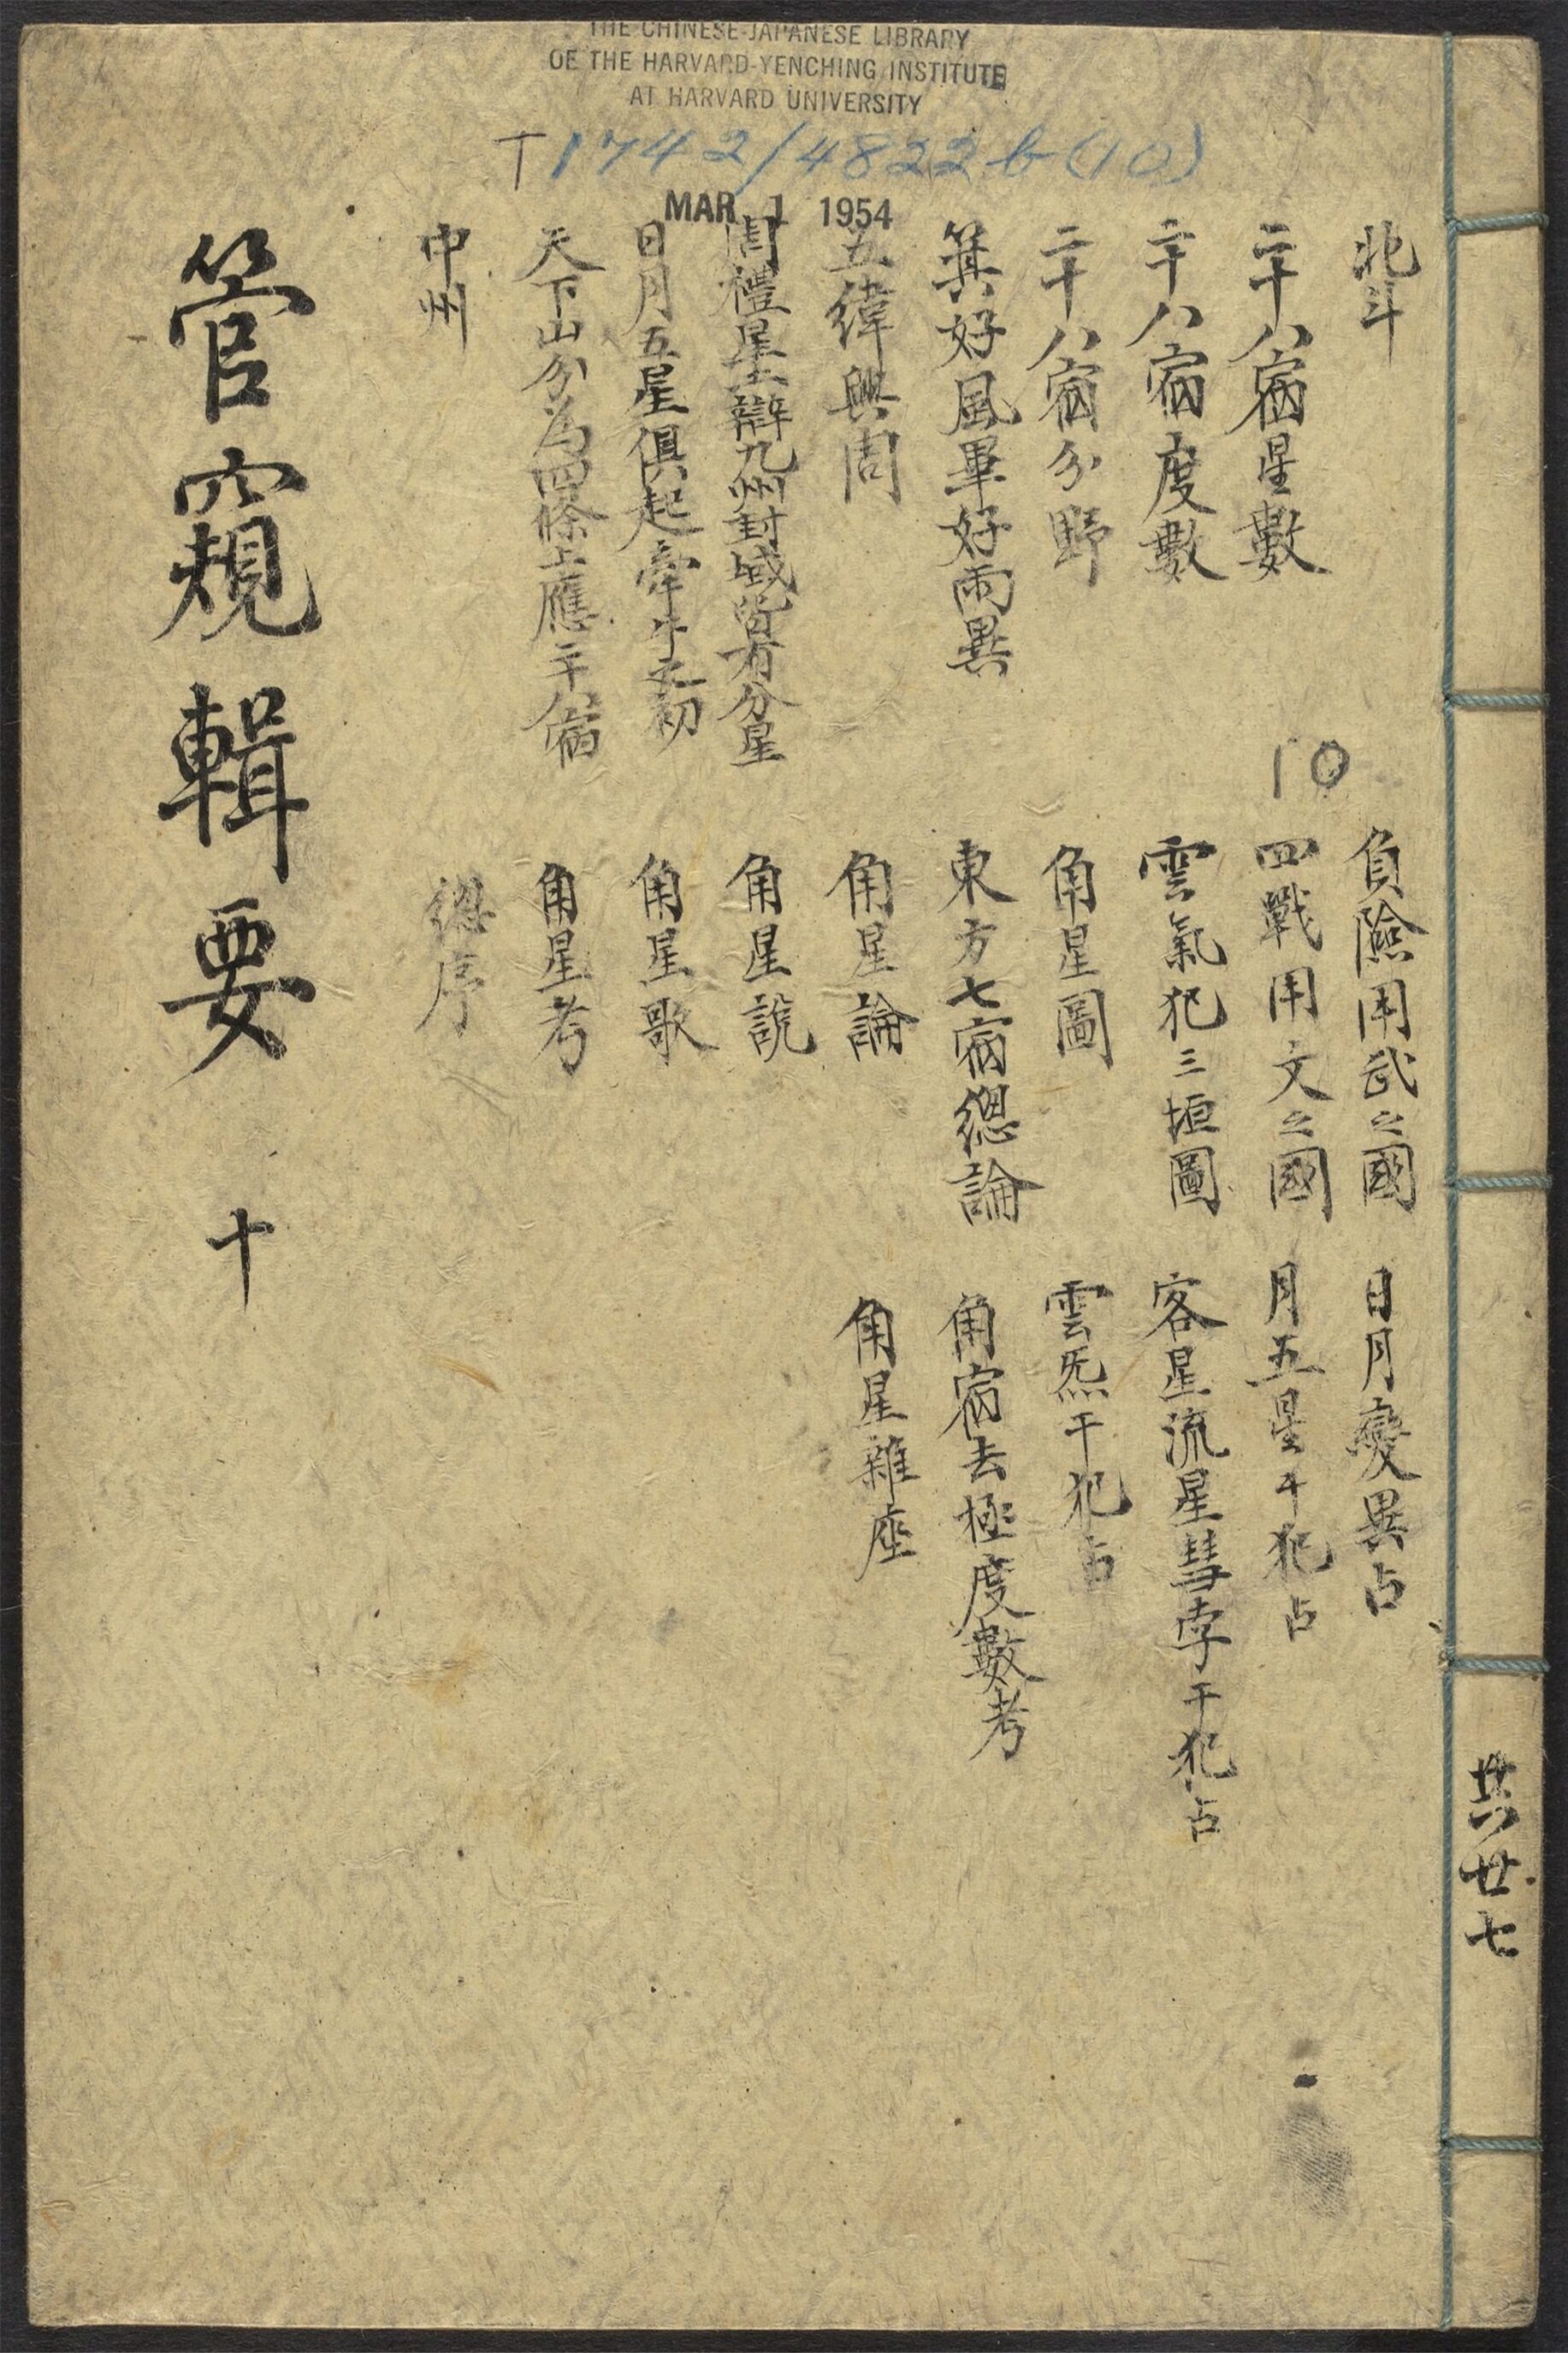 THE CHINESE-JAPANESE LIBRARY
OF THE HARVARD-YENCHING INSTITUTE
AT HARVARD UNIVERSITY
T1742/4822b(10)
MAR 1 1954
共廿七
北斗
二十八宿星數
二十八宿度數
二十八宿分野
箕好風畢好雨異
五緯興周
周禮星土辯九州封域皆有分星
日月五星俱起牽牛之初
天下山分為四條上應二十八宿
中州
10
負險用武之國
四戰用文之國
雲氣犯三垣圖
角星圖
東方七宿緫論
角星論
角星說
角星歌
角星考
緫序
日月變異占
月五星干犯占
客星流星彗孛干犯占
雲炁干犯占
角宿去極度數考
角星雜座
管窺輯要 十